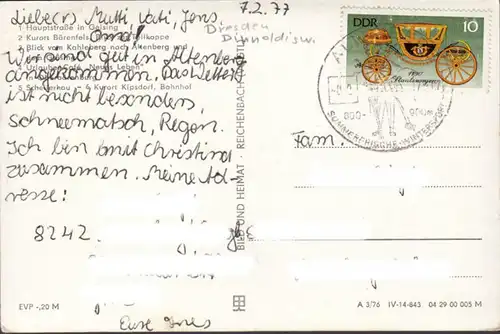 7.2.77
Liebe(r) Mutti, Vati, Jens,
Oma!
Dresden
1 Hauptstraße in Geising
2 Kurort Bärenfels
3 Blick vom Kahleberg nach Altenberg und
5 Schellerhau - 6 Kurort Kipsdorf, Bahnhof
Wir sind gut in Altenberg
angekommen. Das Wetter
ist nicht besonders,
Schneematsch, Regen.
Ich bin mit Christina
zusammen. Meine Ad-
resse:
8242
Eure Ines
EVP -,20 M
BILD UND HEIMAT · REICHENBACH
DDR 10
SOMMERFRISCHE · WINTERSPORT
Fam.
A 3/76 IV-14-843 04 29 00 005 M